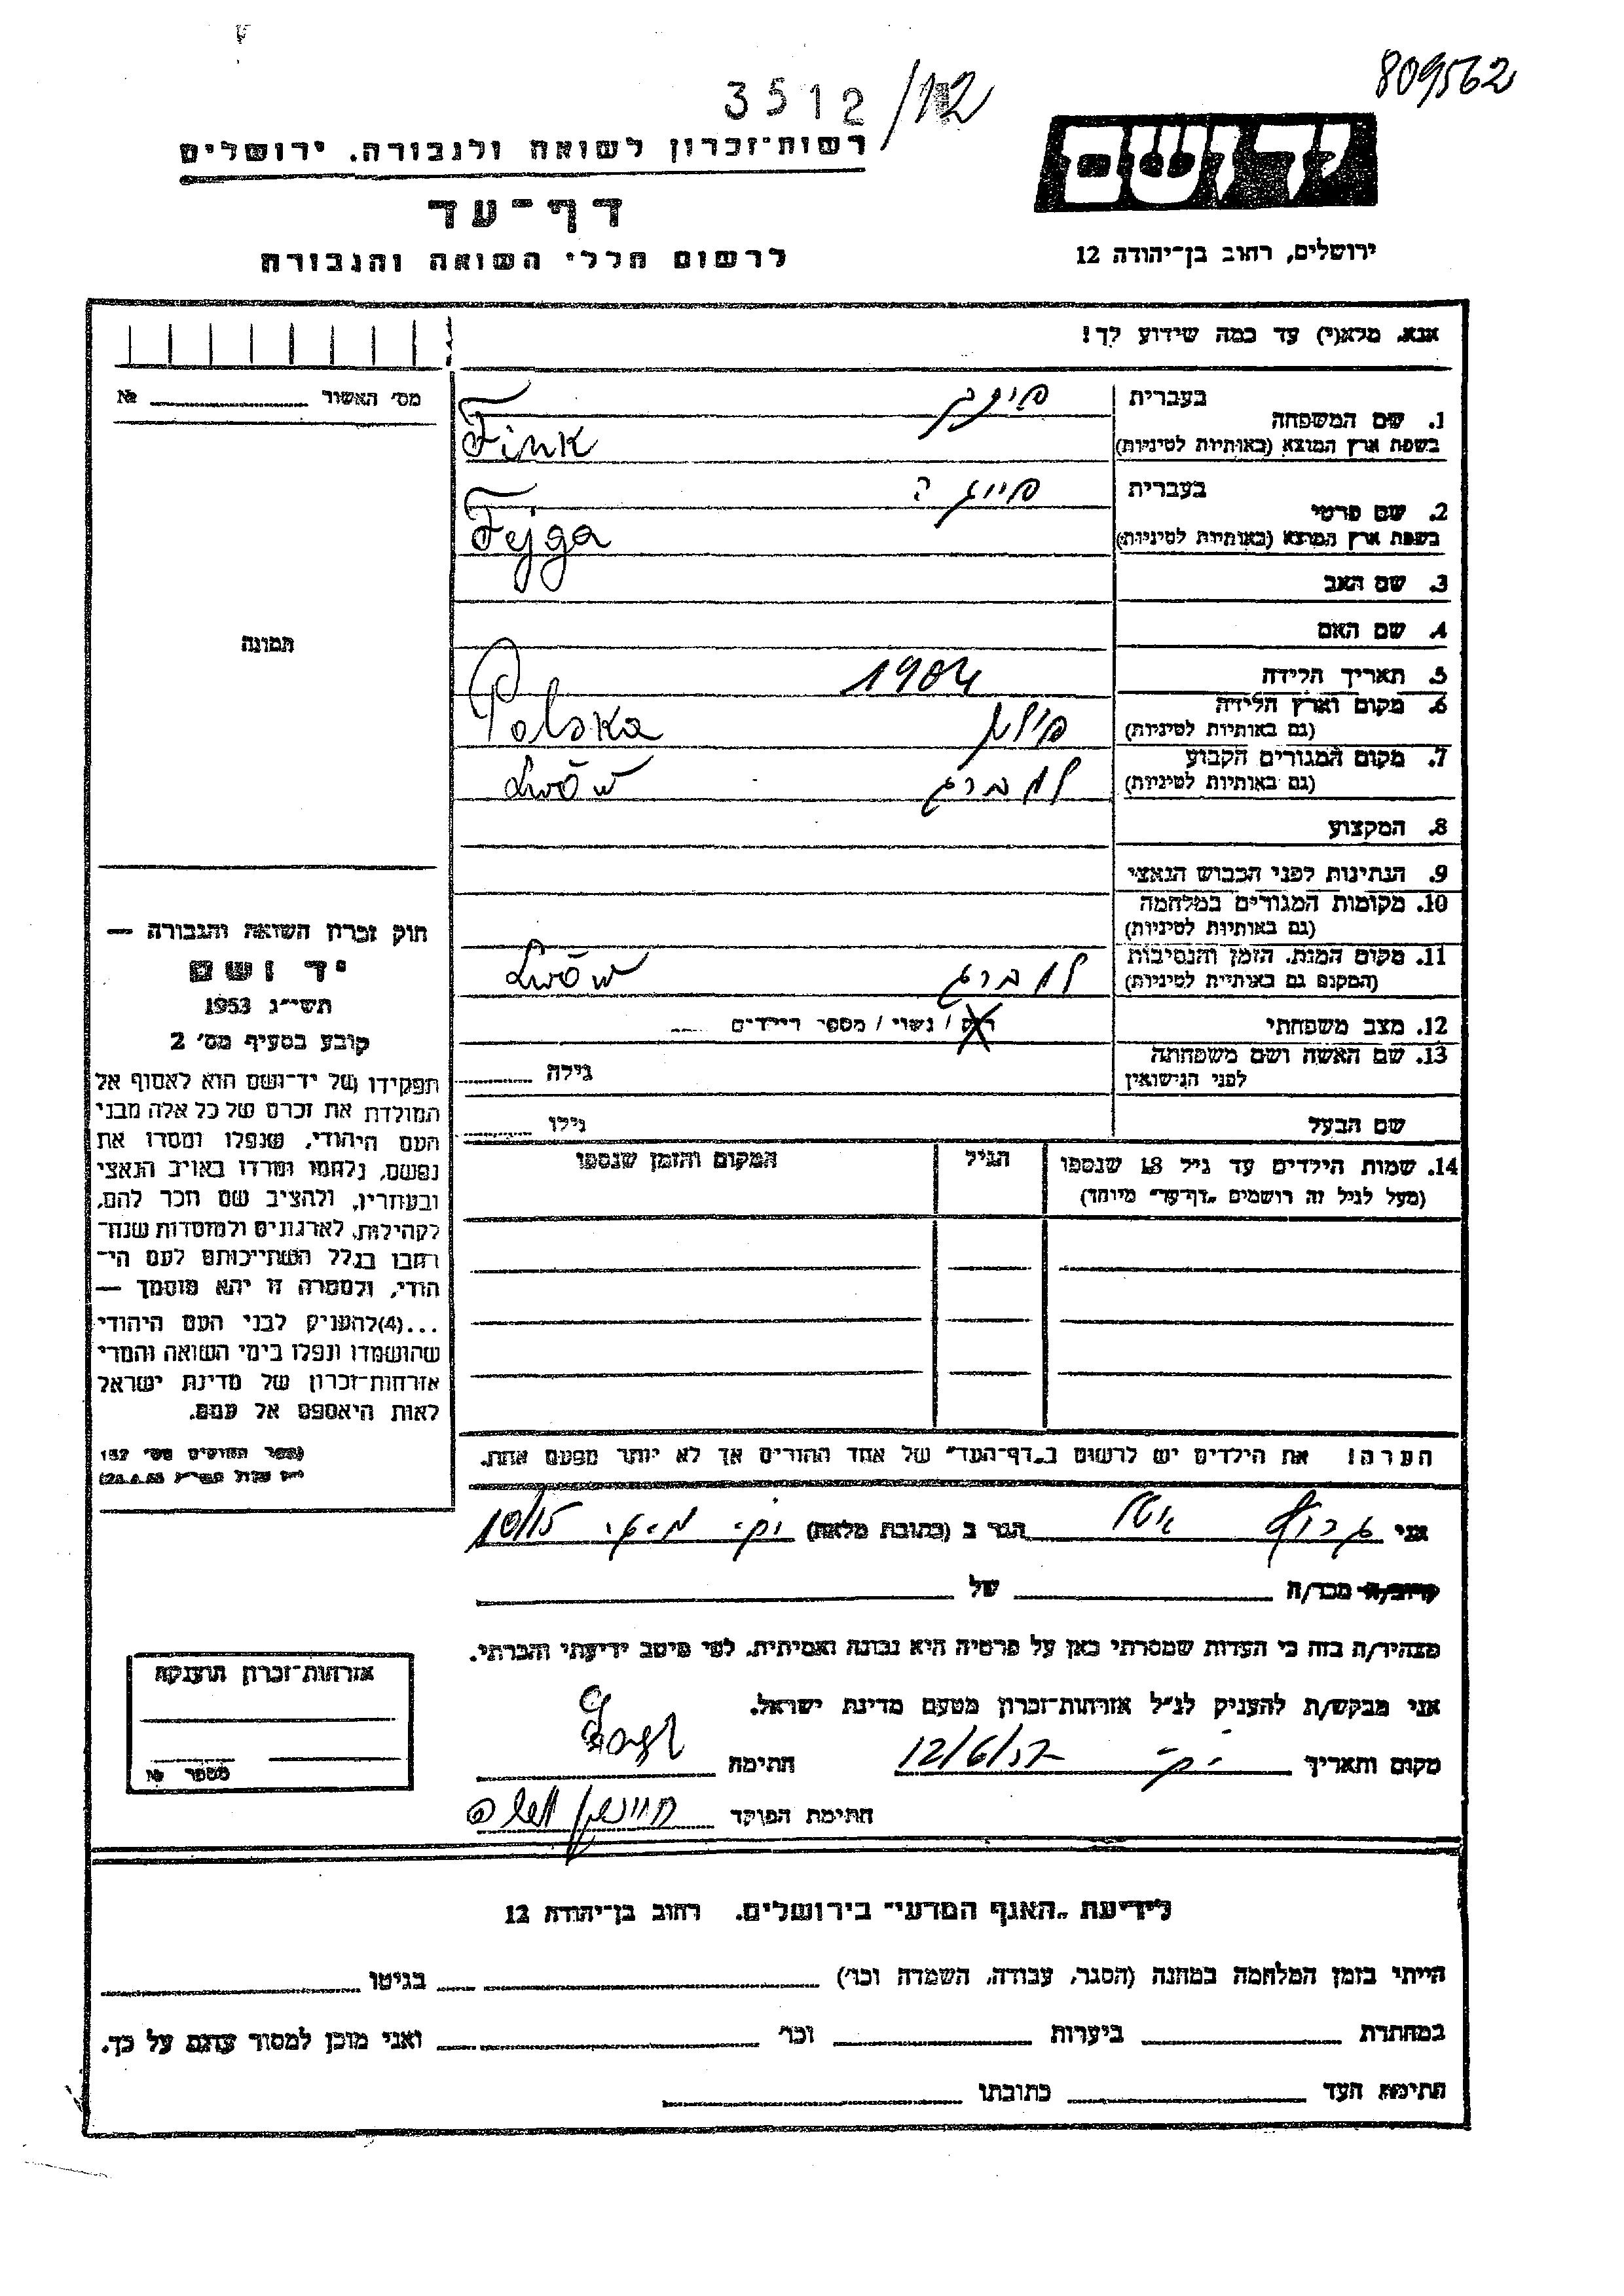 809562
3512/12
רשות־זכרון לשואה ולגבורה. ירושלים
יד ושם
דף־עד
לרשום חללי השואה והגבורה
ירושלים, רחוב בן־יהודה 12
אנא, מלא(י) עד כמה שידוע לך!
מס׳ האשור № 
בעברית
פינק
1. שם המשפחה
בשפת ארץ המוצא (באותיות לטיניות)
Fink
בעברית
פייגה
2. שם פרטי
בשפת ארץ המוצא (באותיות לטיניות)
Fejga
3. שם האב
4. שם האם
תמונה
5. תאריך הלידה 1904
6. מקום וארץ הלידה
(גם באותיות לטיניות)
פולין Polska
7. מקום המגורים הקבוע
(גם באותיות לטיניות)
למברג Lwów
8. המקצוע
9. הנתינות לפני הכבוש הנאצי
10. מקומות המגורים במלחמה
(גם באותיות לטיניות)
11. מקום המות, הזמן והנסיבות
(המקום גם באותיות לטיניות)
למברג Lwów
12. מצב משפחתי רווק / נשוי / מספר הילדים
13. שם האשה ושם משפחתה
לפני הנישואין
גילה
שם הבעל גילו
14. שמות הילדים עד גיל 18 שנספו
(מעל לגיל זה רושמים „דף־עד״ מיוחד)
הגיל
המקום והזמן שנספו
חוק זכרון השואה והגבורה —
יד ושם
תשי״ג 1953
קובע בסעיף מס׳ 2
תפקידו של יד־ושם הוא לאסוף אל
המולדת את זכרם של כל אלה מבני
העם היהודי, שנפלו ומסרו את
נפשם, נלחמו ומרדו באויב הנאצי
ובעוזריו, ולהציב שם וזכר להם,
לקהילות, לארגונים ולמוסדות שנח־
רבו בגלל השתייכותם לעם הי־
הודי, ולמטרה זו יהא מוסמך —
...(4)להעניק לבני העם היהודי
שהושמדו ונפלו בימי השואה והמרי
אזרחות־זכרון של מדינת ישראל
לאות היאספם אל עמם.
(ספר החוקים מס׳ 132
הערה! את הילדים יש לרשום ב„דף־העד״ של אחד ההורים אך לא יותר מפעם אחת.
אני הגר ב (כתובת מלאה) 10/15
קרוב/ה מכר/ה של
מצהיר/ה בזה כי העדות שמסרתי כאן על פרטיה היא נכונה ואמיתית, לפי מיטב ידיעתי והכרתי.
אני מבקש/ת להעניק לנ״ל אזרחות־זכרון מטעם מדינת ישראל.
מקום ותאריך 12/6/57 חתימה
חתימת הפוקד
אזרחות־זכרון הוענקה
מספר №
לידיעת „האגף המדעי״ בירושלים. רחוב בן־יהודה 12
הייתי בזמן המלחמה במחנה (הסגר, עבודה, השמדה וכו׳) בגיטו
במחתרת ביערות וכו׳ ואני מוכן למסור עדותם על כך.
חתימת העד כתובתו